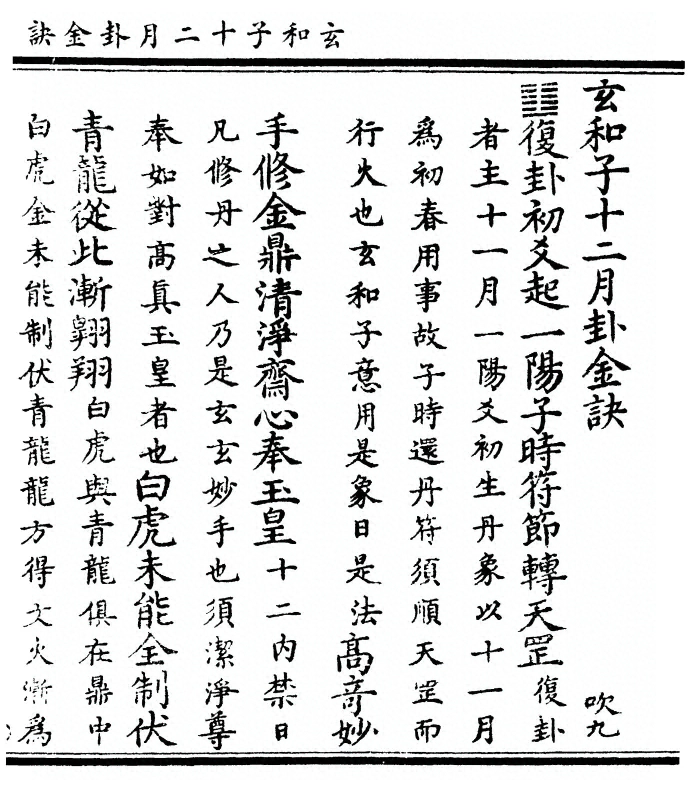 玄和子十二月卦金訣
玄和子十二月卦金訣 吹九
䷗復卦初爻起一陽子時符節轉天罡復卦
者主十一月一陽爻初生丹象以十一月
爲初春用事故子時還丹符須順天罡而
行火也玄和子意用是象日是法髙竒妙
手修金鼎清淨齋心奉玉皇十二內禁日
凡修丹之人乃是玄玄妙手也須潔淨尊
奉如對髙眞玉皇者也白虎未能全制伏
青龍從此漸翺翔白虎與青龍俱在鼎中
白虎金未能制伏青龍龍方得文火漸爲